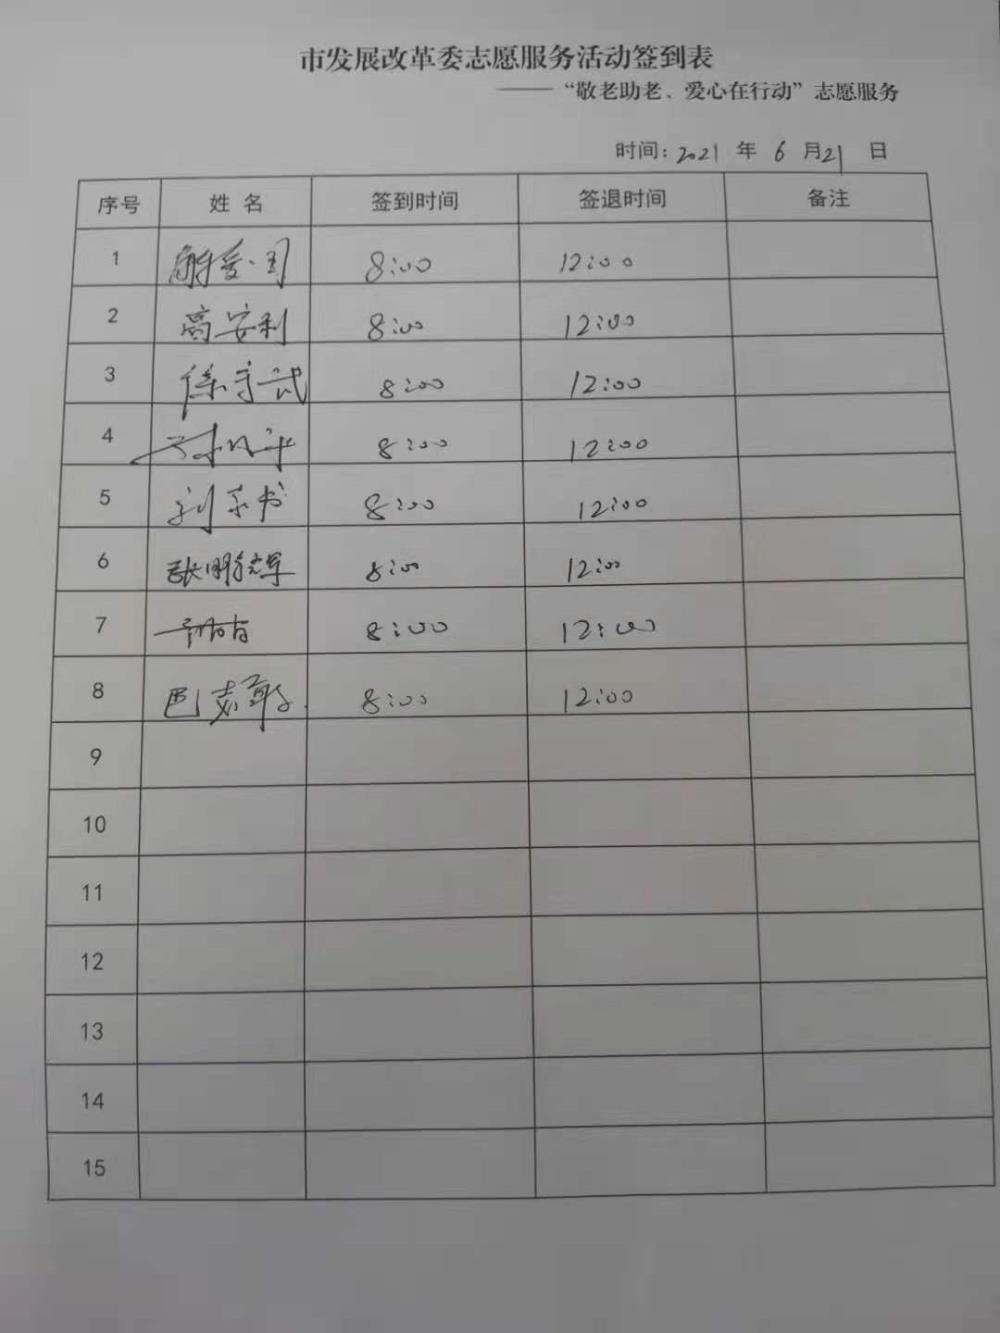 市发展改革委志愿服务活动签到表
——“敬老助老、爱心在行动”志愿服务
时间：2021 年 6 月 21 日
序号 姓 名 签到时间 签退时间 备注
1 8:00 12:00
2 高安利 8:00 12:00
3 徐守武 8:00 12:00
4 8:00 12:00
5 8:00 12:00
6 8:00 12:00
7 8:00 12:00
8 8:00 12:00
9
10
11
12
13
14
15